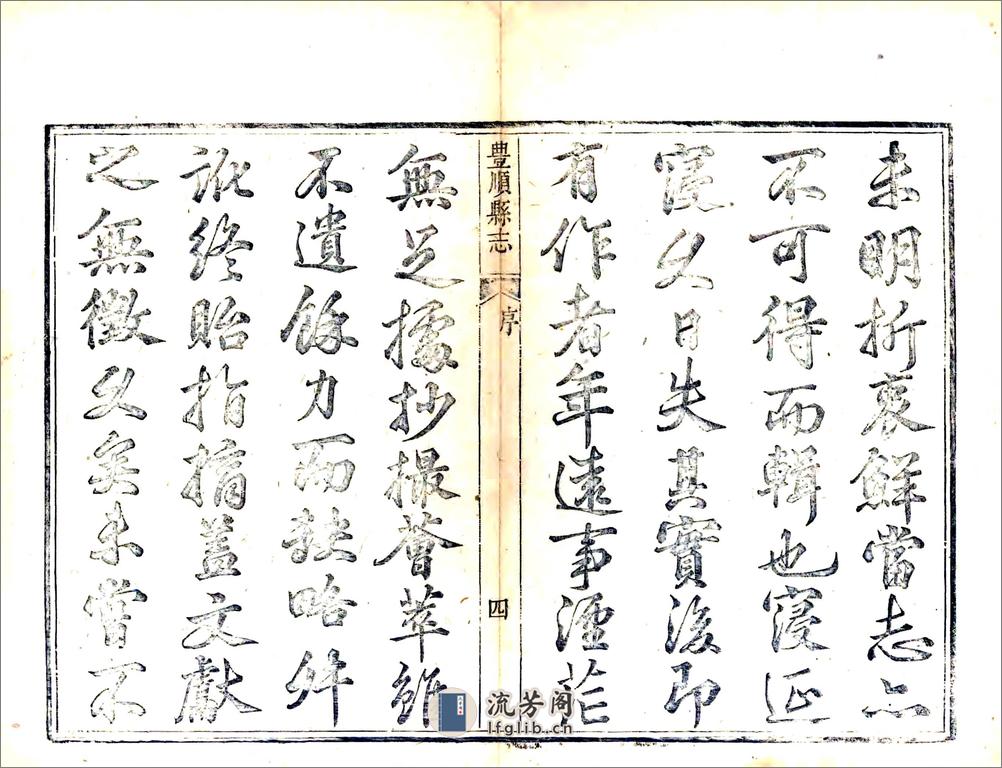 未明折衷鮮當志亦
不可得而輯也寖延
寖久日失其實後即
有作者年遠事湮茫
豊順縣志
序
四
無足據抄撮薈萃雖
不遺餘力而缺略舛
訛終貽指摘蓋文獻
之無徵久矣未嘗不
流芳阁
lfglib.cn